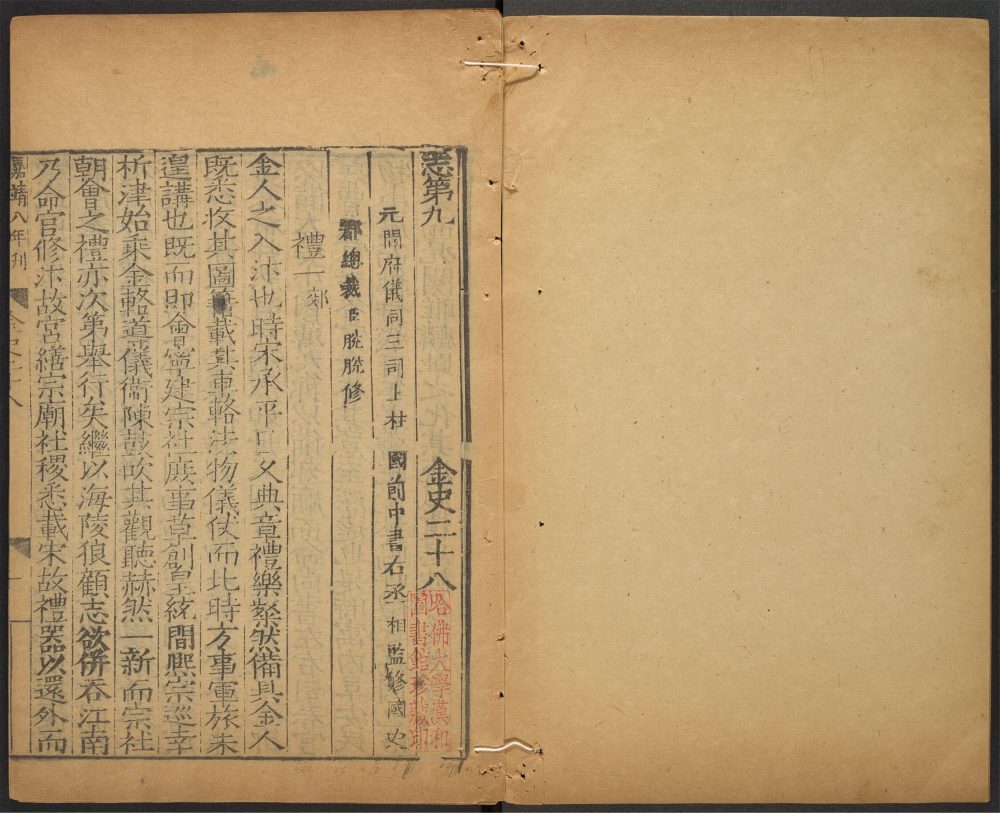 志第九 金史二十八
元開府儀同三司上柱國前中書右丞相監修國史
都總裁臣脫脫修
禮一 郊
金人之入汴也時宋承平日久典章禮樂粲然備具金人
既悉收其圖籍載其車輅法物儀仗而北時方事軍旅未
遑講也既而即會寧建宗社庶事草創皇統間熙宗巡幸
析津始乗金輅導儀衛陳鼓吹其觀聽赫然一新而宗社
朝會之禮亦次第舉行矣繼以海陵狼顧志欲併吞江南
乃命官修汴故宮繕宗廟社稷悉載宋故禮器以還外而
嘉靖八年刊
金史二十八
哈佛大學漢和
圖書館珍藏印